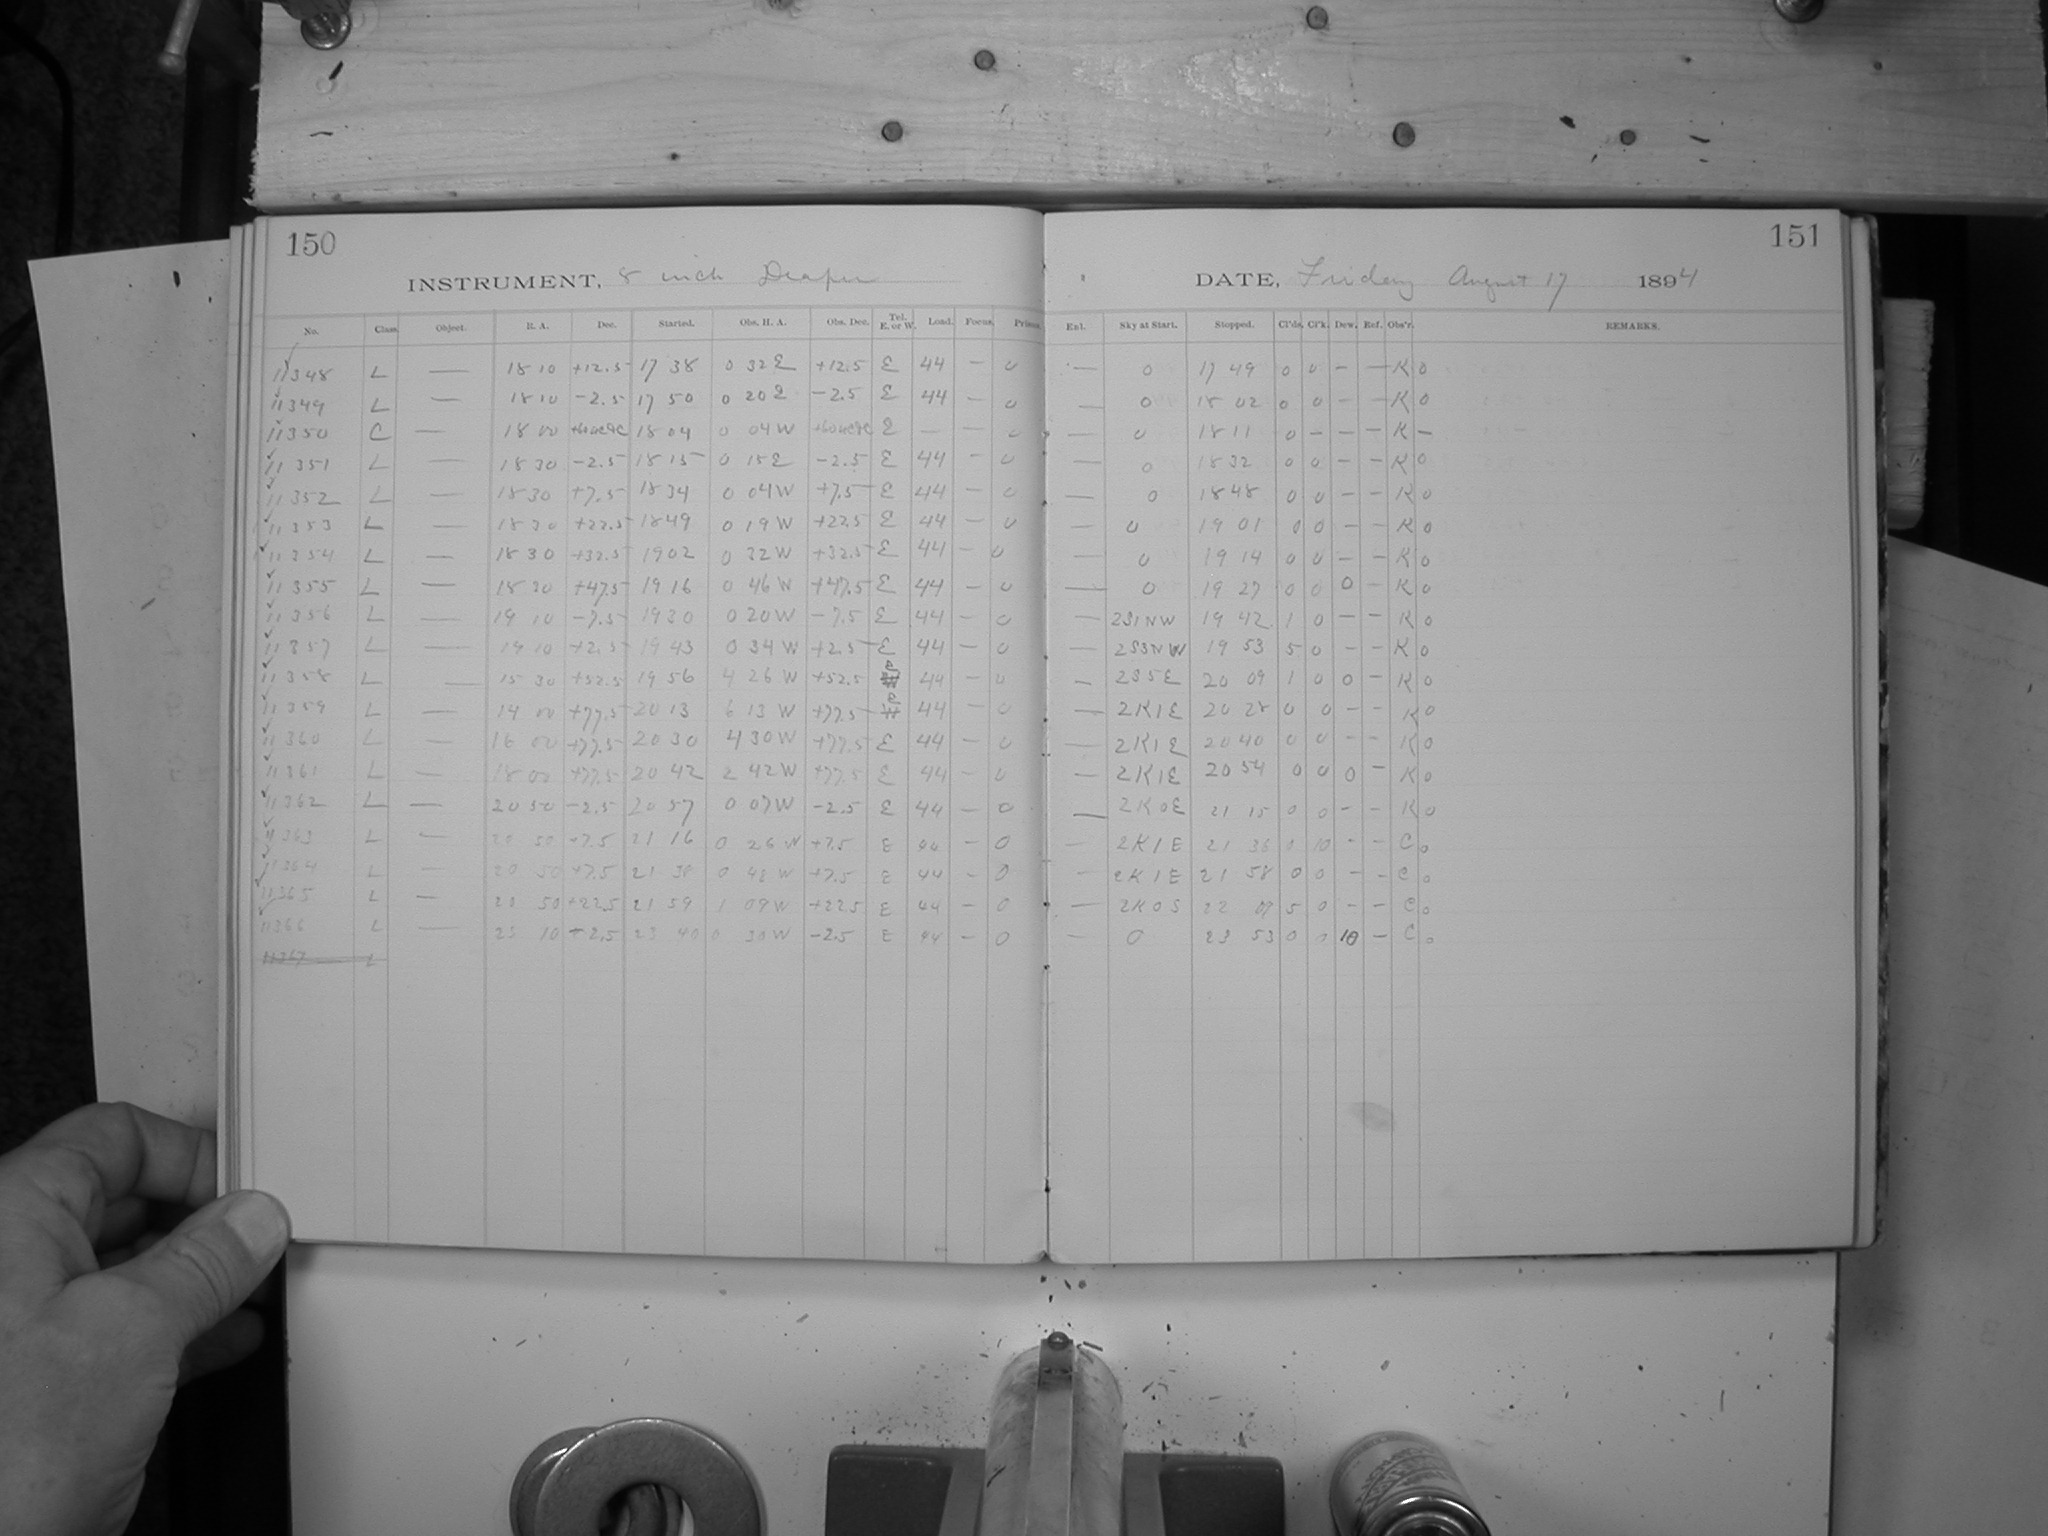 150
151
INSTRUMENT, 8 inch Draper
DATE, Friday August 17 1894
No. Class. Object. R. A. Dec. Started. Obs. H. A. Obs. Dec. Tel. E. or W. Load. Focus. Prism. Enl. Sky at Start. Stopped. Cl'ds. Cl'k. Dew. Ref. Obs'r. REMARKS.
11348 L — 18 10 +12.5 17 38 0 32 E +12.5 E 44 — 0 — 0 17 49 0 0 – — K 0
11349 L — 18 10 -2.5 17 50 0 20 E -2.5 E 44 — 0 — 0 18 02 0 0 – – K 0
11350 C — 18 00 18 04 0 04 W E — — 0 — 0 18 11 0 – – – K –
11351 L — 18 30 -2.5 18 15 0 15 E -2.5 E 44 – 0 — 0 18 32 0 0 – – K 0
11352 L — 18 30 +7.5 18 34 0 04 W +7.5 E 44 – 0 — 0 18 48 0 0 – – K 0
11353 L — 18 30 +22.5 18 49 0 19 W +22.5 E 44 – 0 — 0 19 01 0 0 – – K 0
11354 L — 18 30 +32.5 19 02 0 32 W +32.5 E 44 – 0 — 0 19 14 0 0 – – K 0
11355 L — 18 30 +47.5 19 16 0 46 W +47.5 E 44 – 0 — 0 19 27 0 0 0 – K 0
11356 L — 19 10 -7.5 19 30 0 20 W -7.5 E 44 – 0 — 2S1NW 19 42 1 0 – – K 0
11357 L — 19 10 +2.5 19 43 0 34 W +2.5 E 44 – 0 — 2S3NW 19 53 5 0 – – K 0
11358 L — 15 30 +52.5 19 56 4 26 W +52.5 E 44 – 0 – 2S5E 20 09 1 0 0 – K 0
11359 L — 14 00 +77.5 20 13 6 13 W +77.5 E 44 – 0 — 2K1E 20 28 0 0 – – K 0
11360 L — 16 00 +77.5 20 30 4 30 W +77.5 E 44 – 0 — 2K1E 20 40 0 0 – – K 0
11361 L — 18 00 +77.5 20 42 2 42 W +77.5 E 44 – 0 — 2K1E 20 54 0 0 0 – K 0
11362 L — 20 50 -2.5 20 57 0 07 W -2.5 E 44 – 0 — 2K0E 21 15 0 0 – – K 0
11363 L — 20 50 +7.5 21 16 0 26 W +7.5 E 44 – 0 — 2K1E 21 36 0 10 – – C 0
11364 L — 20 50 +7.5 21 38 0 48 W +7.5 E 44 – 0 — 2K1E 21 58 0 0 – – C 0
11365 L — 20 50 +22.5 21 59 1 09 W +22.5 E 44 – 0 — 2K0S 22 09 5 0 – – C 0
11366 L — 23 10 -2.5 23 40 0 30 W -2.5 E 44 – 0 — 0 23 53 0 0 10 – C 0
11367 L